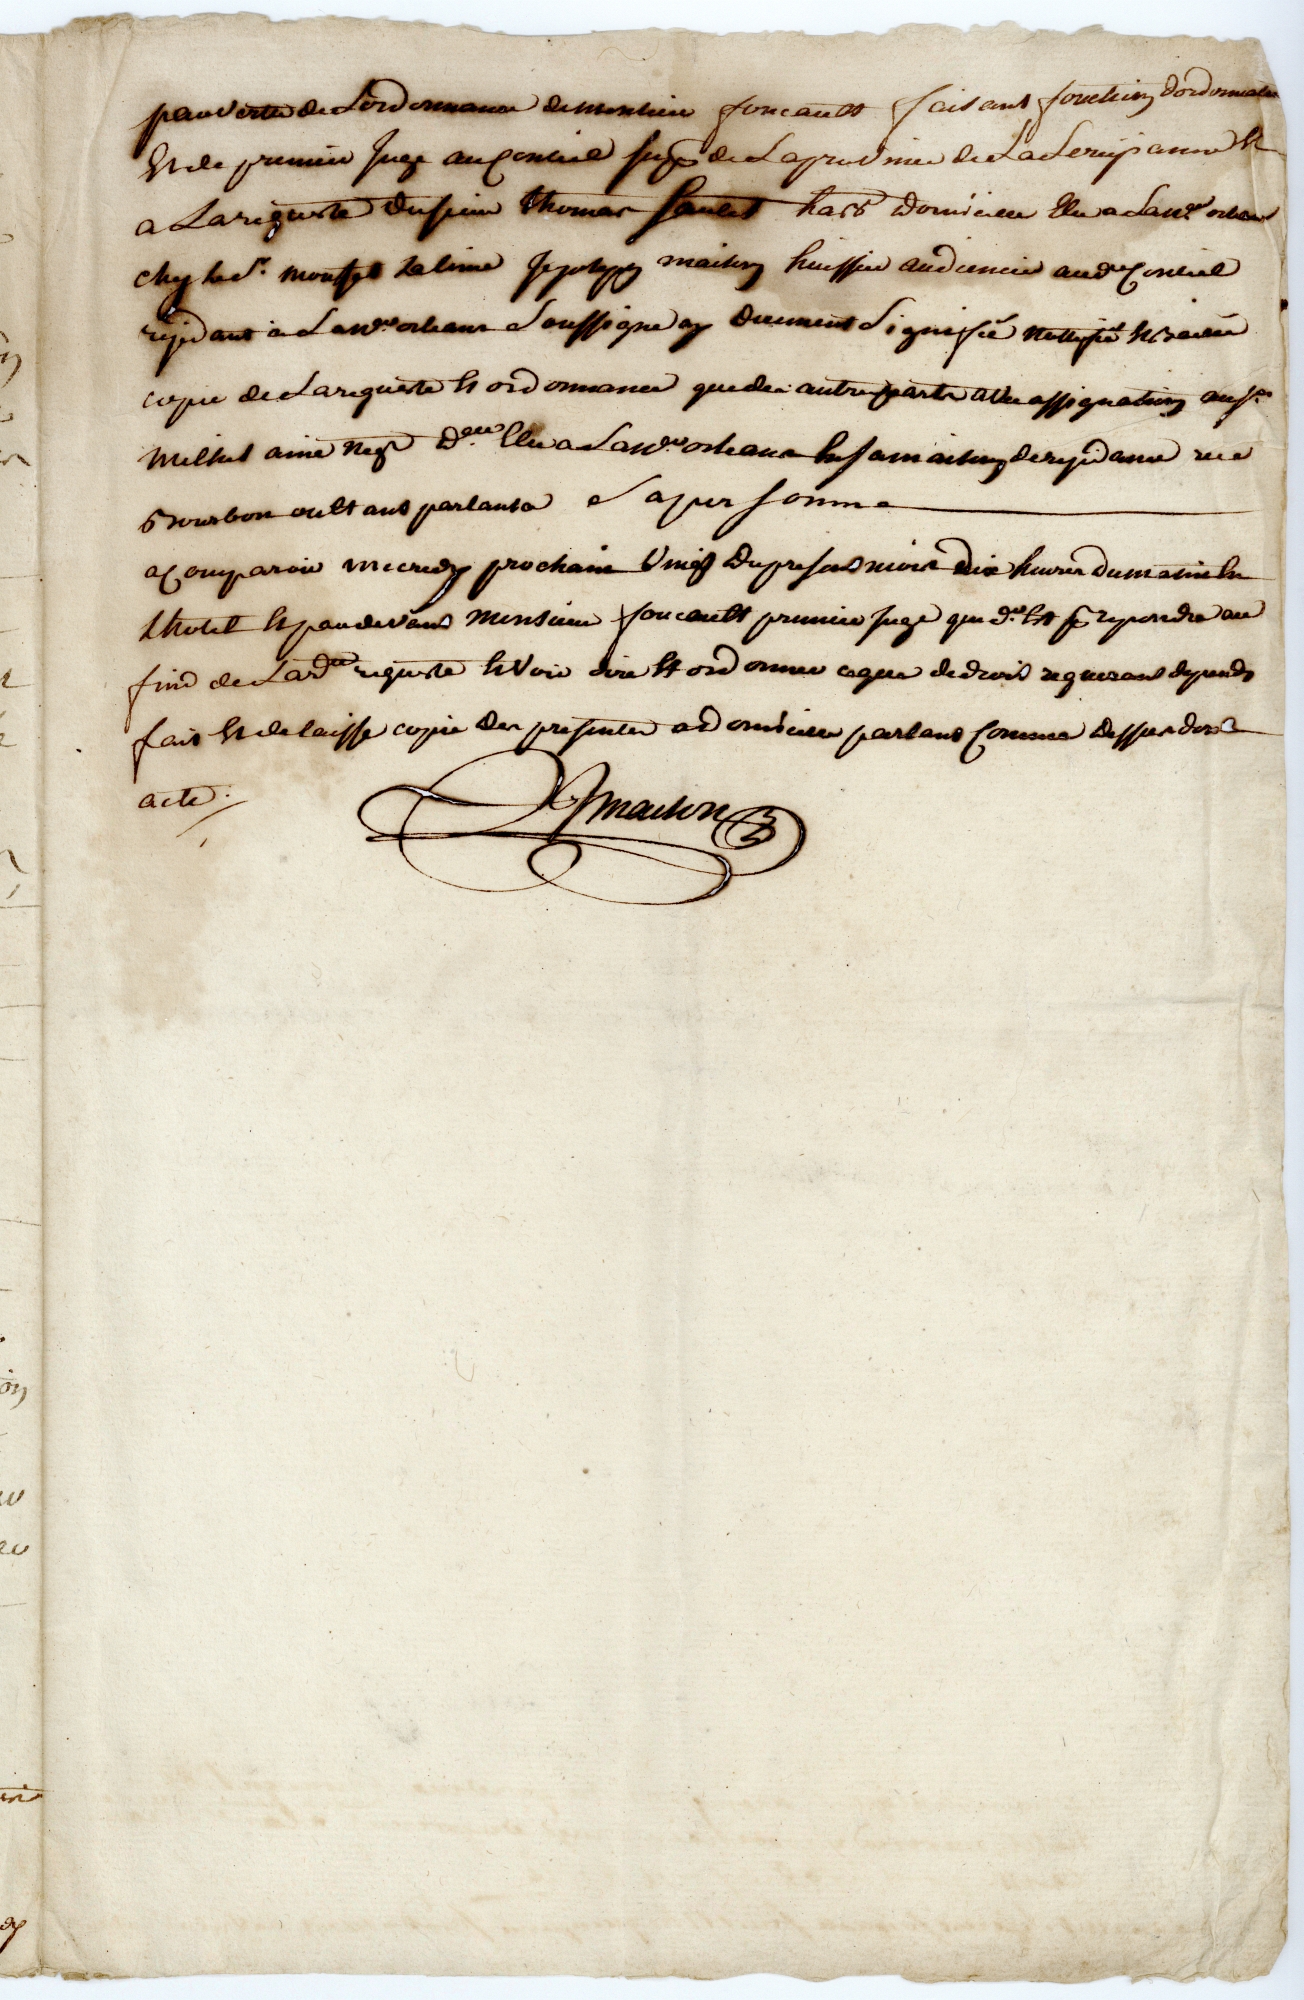 par vertu de Lordonnance de monsieur foucault faisant fonction dordonnateur
Et de premier Juge au Conseil Supr de La province de La Louisianne Et
a La requeste du sieur thomas Saulet hab domicille Elu a La nlle orleans
chez le Sr. Je maison huissier audiencier audt Conseil
residant a La nlle orleans Soussigné ay duement Signifié nottifié et Baillé
copie de La requeste Et ordonnance que des autre parts avec assignation au Sr
milhet ainé negt dlle Elu a La nlle orleans En sa maison de residance rue
Bourbon ou Etant parlant a Sa personne
a Comparoir mecredy prochain vingt du present mois dix heures du matin En
Lhotel Et pardevant monsieur foucault premier Juge que dt Est pr repondre au
fins de La dtte requeste Et voir dire Et ordonner ce que de droit requerant depends
fait Et delaissé copie des presentes a domicille parlant Comme dessus dont
acte.
maison